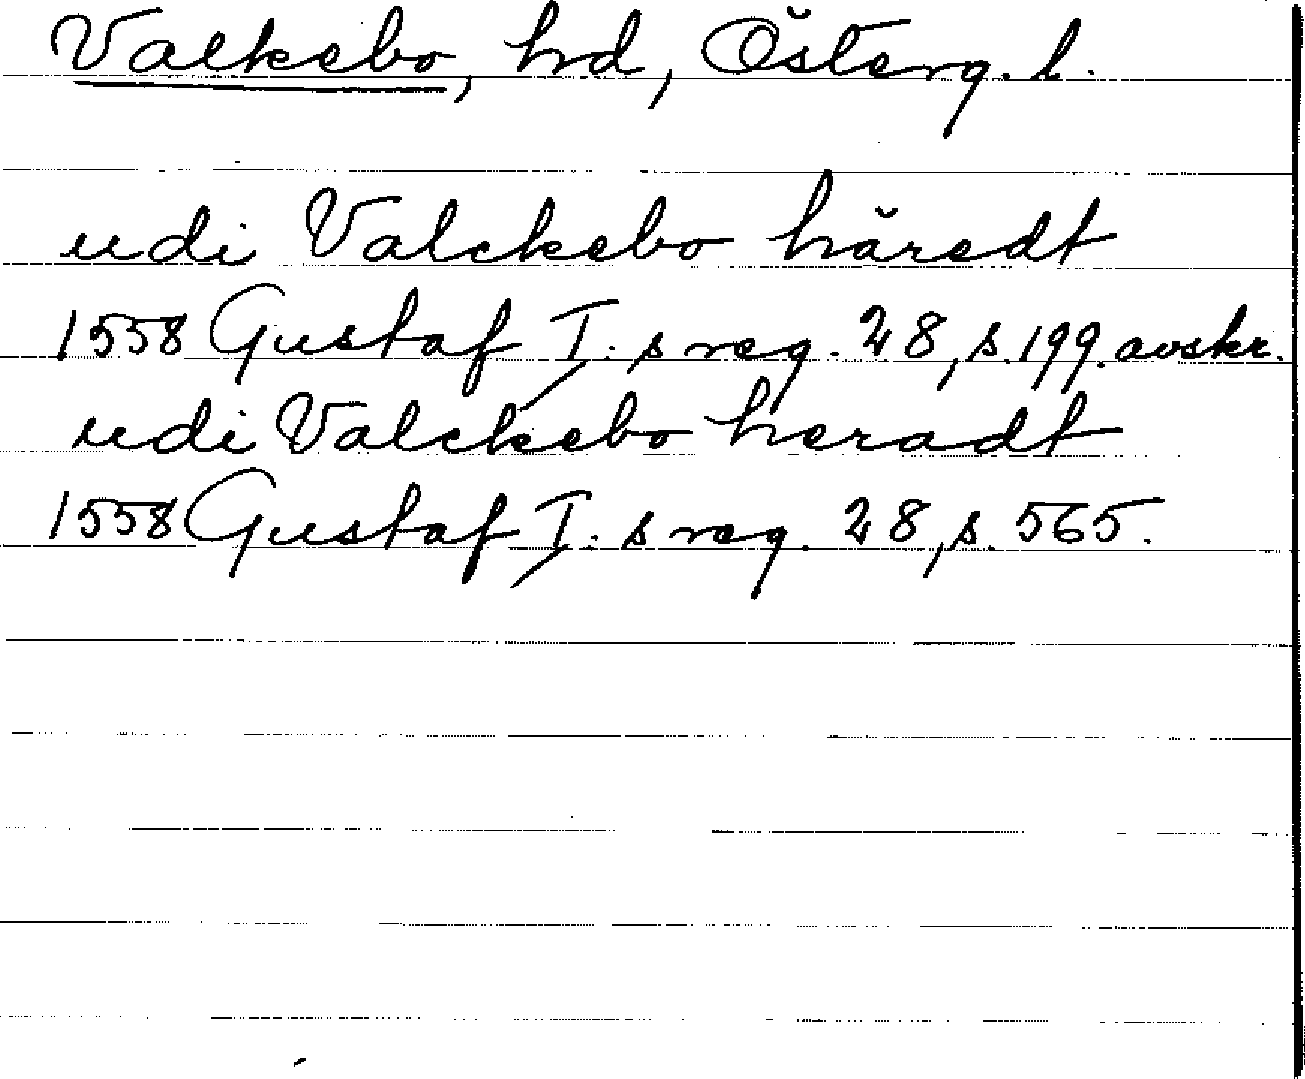 Valkebo, hd, Österg. l.
udi Valckebo häredt
1558 Gustaf I:s reg. 28, s. 199. avskr.
udi Valckebo heradt
1558 Gustaf I:s reg. 28, s. 565.